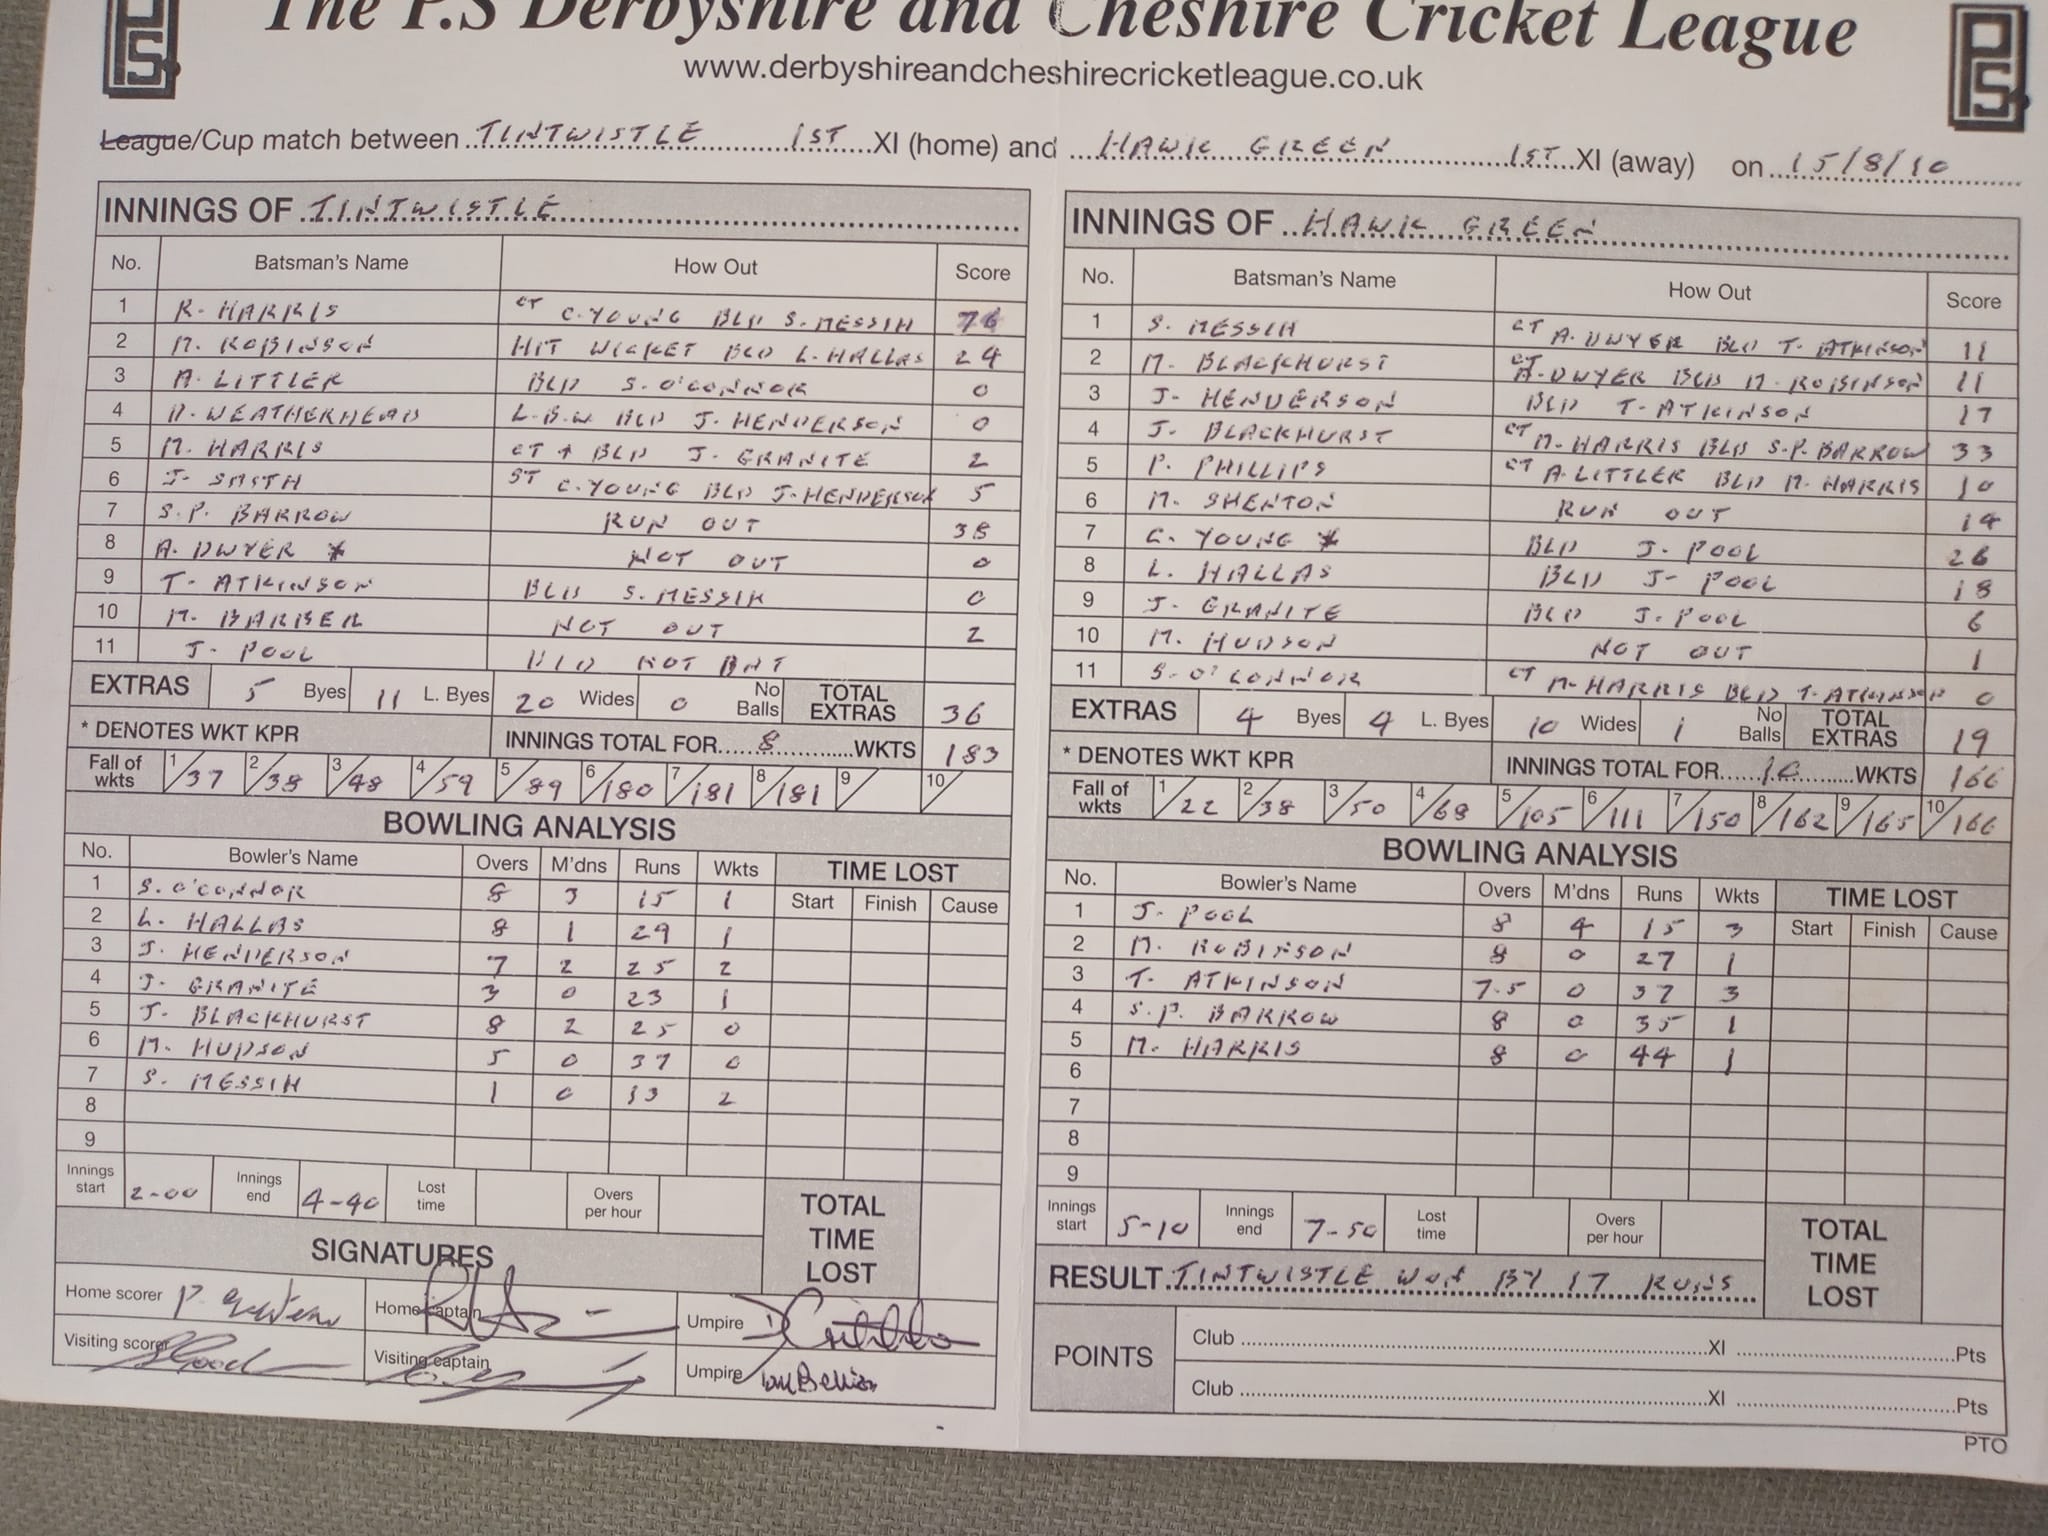 The P.S Derbyshire and Cheshire Cricket League
www.derbyshireandcheshirecricketleague.co.uk
League/Cup match between TINTWISTLE 1ST XI (home) and HAWK GREEN 1ST XI (away) on 15/8/10
INNINGS OF TINTWISTLE
No. Batsman's Name How Out Score
1 R. HARRIS CT C. YOUNG BLD S. MESSIH 76
2 M. ROBINSON HIT WICKET BLD L. HALLAS 24
3 A. LITTLER BLD S. O'CONNOR 0
4 D. WEATHERHEAD L.B.W BLD J. HENDERSON 0
5 M. HARRIS CT + BLD J. GRANITE 2
6 J. SMITH ST C. YOUNG BLD J. HENDERSON 5
7 S.P. BARROW RUN OUT 38
8 A. DWYER * NOT OUT 0
9 T. ATKINSON BLD S. MESSIH 0
10 M. BARBER NOT OUT 2
11 J. POOL DID NOT BAT
EXTRAS 5 Byes 11 L. Byes 20 Wides 0 No Balls TOTAL EXTRAS 36
* DENOTES WKT KPR INNINGS TOTAL FOR 8 WKTS 183
Fall of wkts 1/37 2/38 3/48 4/59 5/89 6/180 7/181 8/181 9/ 10/
BOWLING ANALYSIS
No. Bowler's Name Overs M'dns Runs Wkts TIME LOST
Start Finish Cause
1 S. O'CONNOR 8 3 15 1
2 L. HALLAS 8 1 29 1
3 J. HENDERSON 7 2 25 2
4 J. GRANITE 3 0 23 1
5 J. BLACKHURST 8 2 25 0
6 M. HUDSON 5 0 37 0
7 S. MESSIH 1 0 13 2
8
9
Innings start 2-00 Innings end 4-40 Lost time Overs per hour TOTAL TIME LOST
SIGNATURES
Home scorer Home captain Umpire
Visiting scorer Visiting captain Umpire
INNINGS OF HAWK GREEN
No. Batsman's Name How Out Score
1 S. MESSIH CT A. DWYER BLD T. ATKINSON 11
2 M. BLACKHURST CT A. DWYER BLD M. ROBINSON 11
3 J. HENDERSON BLD T. ATKINSON 17
4 J. BLACKHURST CT M. HARRIS BLD S.P. BARROW 33
5 P. PHILLIPS CT A. LITTLER BLD M. HARRIS 10
6 M. SHENTON RUN OUT 14
7 C. YOUNG * BLD J. POOL 26
8 L. HALLAS BLD J. POOL 18
9 J. GRANITE BLD J. POOL 6
10 M. HUDSON NOT OUT 1
11 S. O'CONNOR CT M. HARRIS BLD T. ATKINSON 0
EXTRAS 4 Byes 4 L. Byes 10 Wides 1 No Balls TOTAL EXTRAS 19
* DENOTES WKT KPR INNINGS TOTAL FOR 10 WKTS 166
Fall of wkts 1/22 2/38 3/50 4/68 5/105 6/111 7/150 8/162 9/165 10/166
BOWLING ANALYSIS
No. Bowler's Name Overs M'dns Runs Wkts TIME LOST
Start Finish Cause
1 J. POOL 8 4 15 3
2 M. ROBINSON 8 0 27 1
3 T. ATKINSON 7.5 0 37 3
4 S.P. BARROW 8 0 35 1
5 M. HARRIS 8 0 44 1
6
7
8
9
Innings start 5-10 Innings end 7-50 Lost time Overs per hour TOTAL TIME LOST
RESULT TINTWISTLE WON BY 17 RUNS
POINTS Club XI Pts
Club XI Pts
PTO